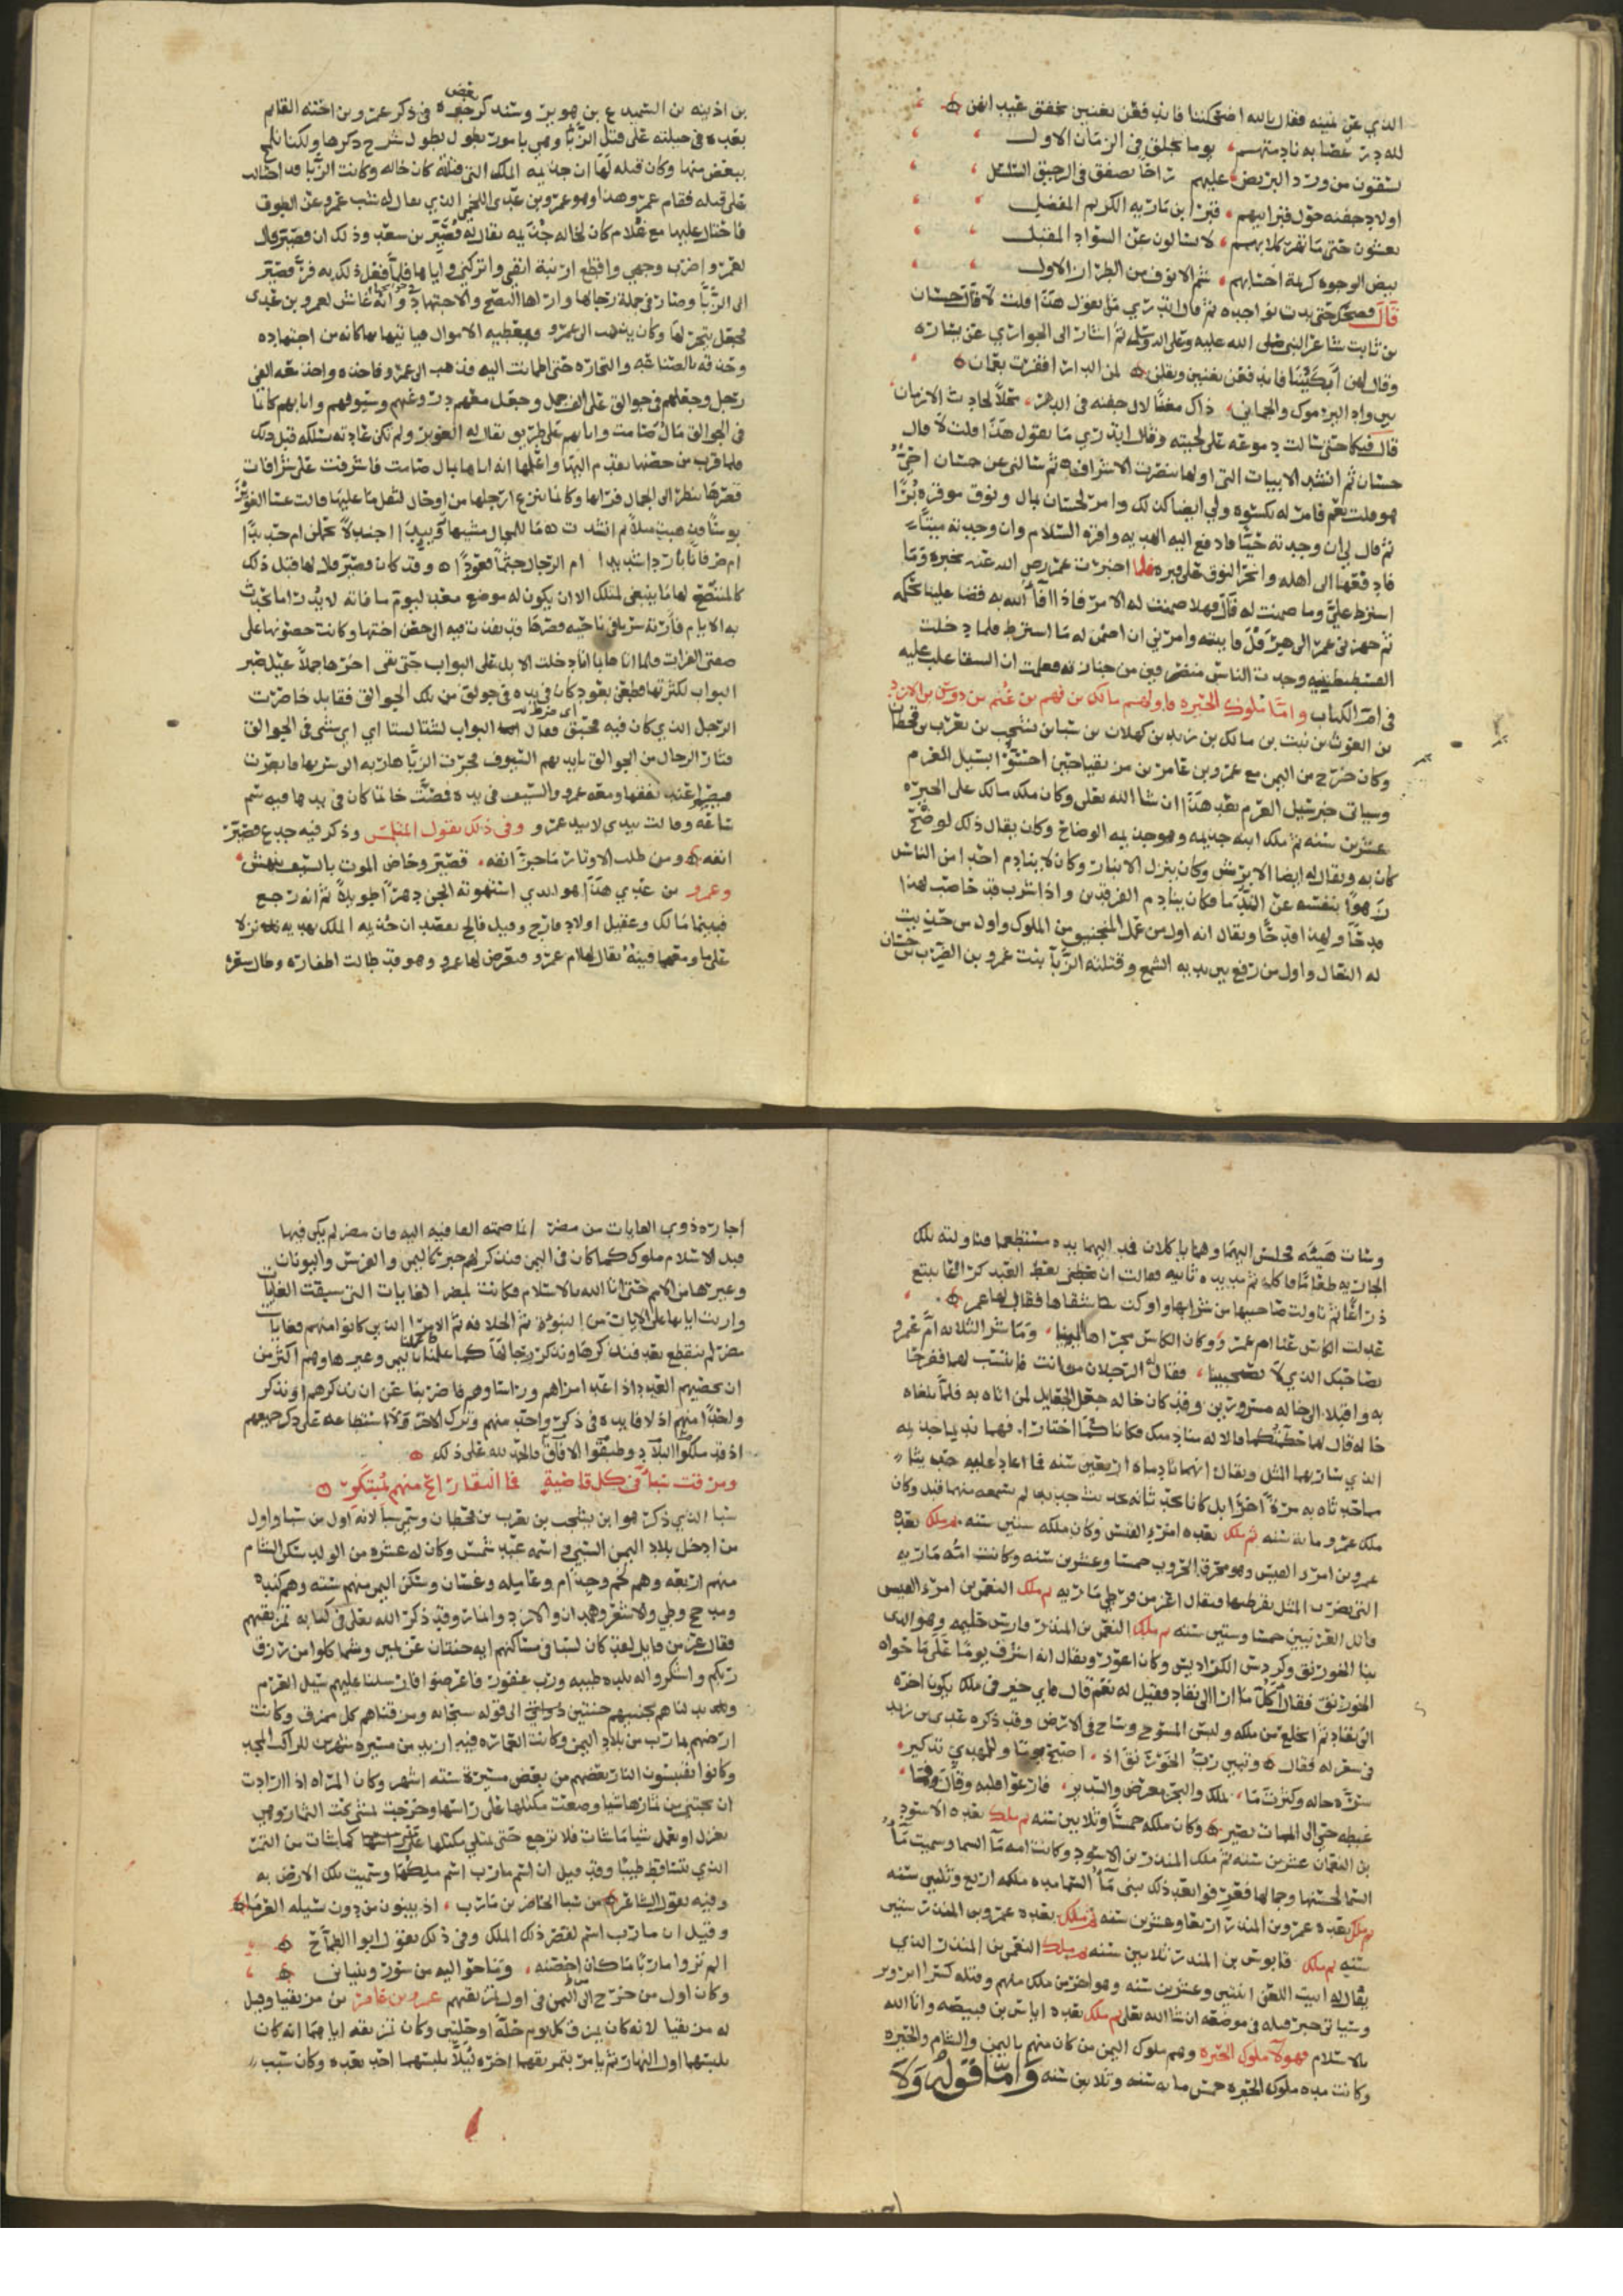 الذي عن يمينه فقال بالله اضحكننا فاندفعن يغنين بخفق عيدانهن
لله در عصابة نادمتهم يوما بجلق في الزمان الاول
يسقون من ورد البريص عليهم راحا يصفق في الرحيق السلسل
اولاد جفنه حول قبر ابيهم قبر ابن ماريه الكريم المفضل
يغشون حتى ما تهر كلابهم لا يسالون عن السواد المقبل
بيض الوجوه كريمة احسابهم شم الانوف من الطراز الاول
قال فضحك حتى بدت نواجده ثم قال اتدري من يقول هذا قلت لا قال حسان
بن ثابت شاعر النبي صلى الله عليه وعلى اله وسلم ثم اشار الى الجواري عن يساره
وقال لهن ابكيننا فاندفعن يغنين ويقلن لمن الدار اقفرت بعمان
بين وادي اليرموك والجمان ذاك مغنا لال جفنه في الدهر محلا لحادث الازمان
قال فبكا حتى سالت دموعه على لحيته وقال اتدري من يقول هذا قلت لا قال
حسان ثم انشد الابيات التي اولها تنصرت الاشراف ثم سالني عن حسان احي
هو قلت نعم فامر له بكسوه ولي ايضا كذلك وامر لحسان بمال ونوق موقره برا
ثم قال لي ان وجدته حيا فادفع اليه الهديه واقره السلام وان وجدته ميتا
فادفعها الى اهله وانحر النوق على قبره فلما اخبرت عمر رضي الله عنه بخبره وما
اشترط علي وما ضمنت له قال فهلا ضمنت له الامر فاذا افا الله به قضا علينا بحكمه
ثم جهزني عمر الى هرقل ثانيه وامرني ان اضمن له ما اشترط فلما دخلت
القسطنطينيه وجدت الناس منصرفين من جنازته فعلمت ان الشقا غلب عليه
في ام الكتاب واما ملوك الحيره فاولهم مالك بن فهم بن غنم بن دوس بن الازد
بن الغوث بن نبت بن مالك بن زيد بن كهلان بن سبا بن يشجب بن يعرب بن قحطان
وكان خرج من اليمن مع عمرو بن عامر بن مزيقيا حين احسوا بسيل العرم
وسياتي خبر سيل العرم بعد هذا ان شا الله تعلى وكان ملك مالك على الحيره
عشرين سنه ثم ملك ابنه جذيمه وهو جذيمه الوضاح وكان يقال ذلك لوضح
كان به ويقال له ايضا الابرش وكان ينزل الانبار وكان لا ينادم احدا من الناس
زهوا بنفسه عن الندما فكان ينادم الفرقدين واذا شرب قدحا صب لهذا
قدحا ولهذا قدحا ويقال انه اول من عمل المنجنيق من الملوك واول من حذيت
له النعال واول من رفع بين يديه الشمع وقتلته الزبا بنت عمرو بن الضرب بن حسان
بن اذينه بن السميدع بن هوبر وسنذكر بعض خبره في ذكر عمرو بن اخته القايم
بعده في حيلته على قتل الزبا وهي يطول شرح ذكرها ولكنا نلم
ببعض منها وكان قبله لها ان جذيمه الملك التي قتلته كان خاله وكانت الزبا قد احتالت
على قتله فقام عمرو هذا وهو عمرو بن عدي اللخمي الذي يقال له شب عمرو عن الطوق
فاحتال عليها مع غلام كان لخاله جذيمه يقال له قصير بن سعد وذلك ان قصير قال
لعمرو اضرب وجهي واقطع ارنبة انفي واتركني واياها فلما فعل ذلك به فر قصير
الى الزبا وصار في جملة رجالها واراها النصح والاجتهاد وانه غاش لعمرو بن عدي
فجعل يتجر لها وكان يذهب الى عمرو فيعطيه الاموال فياتيها بها كانه من اجتهاده
وحذقه بالصناعه والتجاره حتى اطمانت اليه فذهب الى عمرو فاخذه واخذ معه الفي
رجل وجعلهم في جوالق على الف جمل وجعل معهم دروعهم وسيوفهم واتا بهم كانما
في الجوالق مال صامت واتا بهم على طريق يقال له الغوير ولم تكن عادته يسلكه قبل ذلك
فلما قرب من حصنها تقدم اليها واعلمها انه اتاها بمال صامت فاشرفت على شرافات
قصرها تنظر الى الجمال فراتها وكانما تنزع ارجلها من اوحال لثقل ما عليها قالت عسا الغوير
ابوسا ثم انشدت ما للجمال مشيها وئيدا اجندلا يحملن ام حديدا
ام صرفانا باردا شديدا ام الرجال جثما قعودا وقد كان قصير قال لها قبل ذلك
كالمتنصح لها ما ينبغي لمثلك الا ان يكون له موضع معد ليوم ما فانه لا يدري ما تحدث
به الايام فارته سربا في ناحيه قصرها قد نفذت فيه الى حصن اختها وكانت حصونها على
ضفتي الفرات فلما اتاها دخلت الابل على البواب حتى بقي اخرها جملا عيل صبر
البواب لكثرتها فطعن بعود كان في يده في جولق من تلك الجوالق فقابله خاصرت
الرجل الذي كان فيه محبق فقال البواب لشتا لستا اي اي شي في الجوالق
فثار الرجال من الجوالق بايديهم السيوف فخرت الزبا هاربه الى سربها فابصرت
قصيرا عند نفقها ومعه عمرو والسيف في يده فمصت خاتما كان في يدها فيه سم
ساعه وقالت بيدي لا بيد عمرو وفي ذلك يقول المتلمس وذكر فيه جدع قصير
انفه ومن طلب الاوتار ما حز انفه قصير وخاض الموت بالسيف بيهس
وعمرو بن عدي هذا هو الذي استهوته الجن دهرا طويلا ثم انه رجع
فبينما مالك وعقيل اولاد فارج وقيل فالح يقصدان جذيمه الملك بهديه نزلا
على ما ومعهما قينه يقال لها ام عمرو فتعرض لها عمرو وهو قد طالت اظفاره وطال شعره
وسات هيئه فجلس اليهما وهما ياكلان فمد اليهما يده مستطعما فناولته تلك
الجاريه طعاما فاكله ثم مد يده ثانيه فقالت ان يعط العبد كراعا يبتغ
ذراعا ثم ناولت صاحبيها من شرابها واوكت سقاها فقال لها عمرو
عدلت الكاس عنا ام عمرو وكان الكاس مجراها اليمينا وما شر الثلاثه ام عمرو
بصاحبك الذي لا تصحبينا فقال له الرجلان من انت فانتسب لهما ففرحا
به واقبلا الى خاله مسرورين وقد كان خاله جعل الجعايل لمن اتاه به فلما بلغاه
خاله قال لهما حكمكما قالا له منادمتك فكانا كما اختارا فهما نديما جذيمه
الذي سار بهما المثل ويقال انهما نادماه اربعين سنه فما اعاد عليه حديثا
حدثاه به مرة اخرى بل كانا يحدثانه بحديث جديد لم يسمعه منهما قبل وكان
ملك عمرو مايه سنه ثم ملك بعده امرؤ القيس وكان ملكه ستين سنه ثم ملك بعده
عمرو بن امرؤ القيس وهو محرق الحروب خمسا وعشرين سنه وكانت امه ماريه
التي يضرب المثل بقرطيها فيقال اعز من قرطي ماريه ثم ملك النعمن بن امرؤ القيس
قاتل الفرس خمسا وستين سنه ثم ملك النعمن بن المنذر فارس حليمه وهو الذي
بنا الخورنق وكردس الكراديس وكان اعور ويقال انه اشرف يوما على ما حواه
الخورنق فقال اكل ما ارا الى نفاد فقيل له نعم قال فاي خير في ملك يكون اخره
الى نفاد ثم انخلع من ملكه ولبس المسوح وساح في الارض وقد ذكره عدي بن زيد
في شعر له فقال وتبين رب الخورنق اذ اصبح يوما وللهدي تذكير
سره حاله وكثرت ما يملك والبحر معرض والسدير فارعوا قلبه وقال وما
غبطه حي الى الممات يصير وكان ملكه خمسا وثلاثين سنه ثم ملك بعده الاسود
بن النعمان عشرين سنه ثم ملك المنذر بن الاسود وكانت امه ما السما وسميت ما
السما لحسنها وجمالها فعرفوا بعد ذلك بني ما السما مده ملكه اربع وثلثين سنه
ثم ملك بعده عمرو بن المنذر اربعا وعشرين سنه ثم ملك بعده عمرو بن المنذر ستين
سنه ثم ملك قابوس بن المنذر ثلاثين سنه ثم ملك النعمن بن المنذر الذي
يقال له ابيت اللعن اثنين وعشرين سنه وهو اخر من ملك منهم وقتله كسرا ابرويز
وسياتي خبر قتله في موضعه ان شا الله تعلى ثم ملك بعده اياس بن قبيصه واتا الله
بالاسلام فهولا ملوك الحيره وهم ملوك اليمن من كان منهم باليمن والشام والحيره
وكانت مده ملوك الحيره خمس مايه سنه وثلاثين سنه واما قوله ولا
اجارت ذوي الغايات من مضر فان مضر لم يكن فيها
قبل الاسلام ملوك كما كان في اليمن فنذكر لهم خبر كاليمن والفرس واليونان
وغيرها من الامم حتى اتا الله بالاسلام فكانت لمضر الغايات التي سبقت الغايات
واربت اياتها على الايات من النبوه ثم الخلافه ثم الامرا الذين كانوا منهم فغايات
مضر لم تنقطع بعد فنذكرها ونذكر رجالها كما علمنا باليمن وغيرها وهم اكثر من
ان يحصيهم العدد اذا عد امراهم وروساوهم فاضربنا عن ان نذكرهم او نذكر
واحدا منهم اذ لا فايده في ذكر واحد منهم وترك الاخر ولا استطاعه على ذكر جميعهم
اذ قد ملكوا البلاد وطبقوا الافاق والحمد لله على ذلك
ومزقت سبا في كل قاصية فما التقا رائح منهم بمبتكر
سبا الذي ذكر هو ابن يشجب بن يعرب بن قحطان وسمي سبا لانه اول من سبا واول
من ادخل بلاد اليمن السبي واسمه عبد شمس وكان له عشره من الولد سكن الشام
منهم اربعه وهم لخم وجذام وعامله وغسان وسكن اليمن منهم سته وهم كنده
ومذحج وطي والاشعر وهمدان والازد وانمار وقد ذكر الله تعلى في كتابه تمزيقهم
فقال عز من قايل لقد كان لسبا في مساكنهم ايه جنتان عن يمين وشمال كلوا من رزق
ربكم واشكروا له بلده طيبه ورب غفور فاعرضوا فارسلنا عليهم سيل العرم
وبدلناهم بجنتيهم جنتين ذواتي الى قوله سبحانه ومزقناهم كل ممزق وكانت
ارضهم مارب من بلاد اليمن وكانت العماره فيه ازيد من مسيره شهرين للراكب المجد
وكانوا يقتبسون النار بعضهم من بعض مسيرة سته اشهر وكان المراه اذا ارادت
ان تجتني من ثمارها شيا وضعت مكتلها على راسها وخرجت تمشي تحت الثمار وهي
تغزل او تعمل شيا ما شات فلا ترجع حتى يمتلي مكتلها كما شات من الثمر
الذي يتساقط طيبا وقد قيل ان اسم مارب اسم ملكها وسميت تلك الارض به
وفيه يقول الشاعر من سبا الحاضر بن مارب اذ يبنون من دون سيله العرما
وقيل ان مارب اسم لقصر ذلك الملك وفي ذلك يقول ابو الطماح
الم تروا ماربا ما كان احصنه وما حواليه من سور وبنيان
وكان اول من خرج من اليمن في اول تمزيقهم عمرو بن عامر بن مزيقيا وقيل
له مزيقيا لانه كان يمزق كل يوم حله او حلتين وكان تمزيقه اياهما انه كان
يلبسهما اول النهار ثم يامر بتمزيقهما اخره ليلا يلبسهما احد بعده وكان سبب